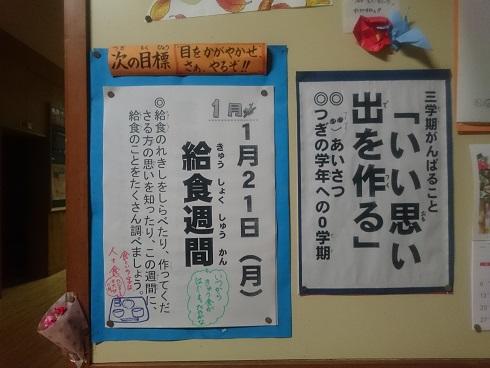 三学期がんばること
「いい思い
出を作る」
◎あいさつ
◎つぎの学年への0学期
次の目標
目をかがやかせ
さあ、やるぞ!!
1月
1月21日(月)
給食週間
きゅうしょくしゅうかん
◎給食のれきしをしらべたり、作ってくだ
さる方の思いを知ったり、この週間に、
給食のことをたくさん調べましょう。
いつから